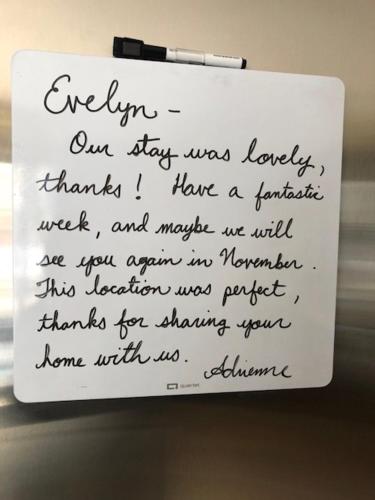 Evelyn -
Our stay was lovely,
thanks! Have a fantastic
week, and maybe we will
see you again in November.
This location was perfect,
thanks for sharing your
home with us.
Adrienne
Quartet